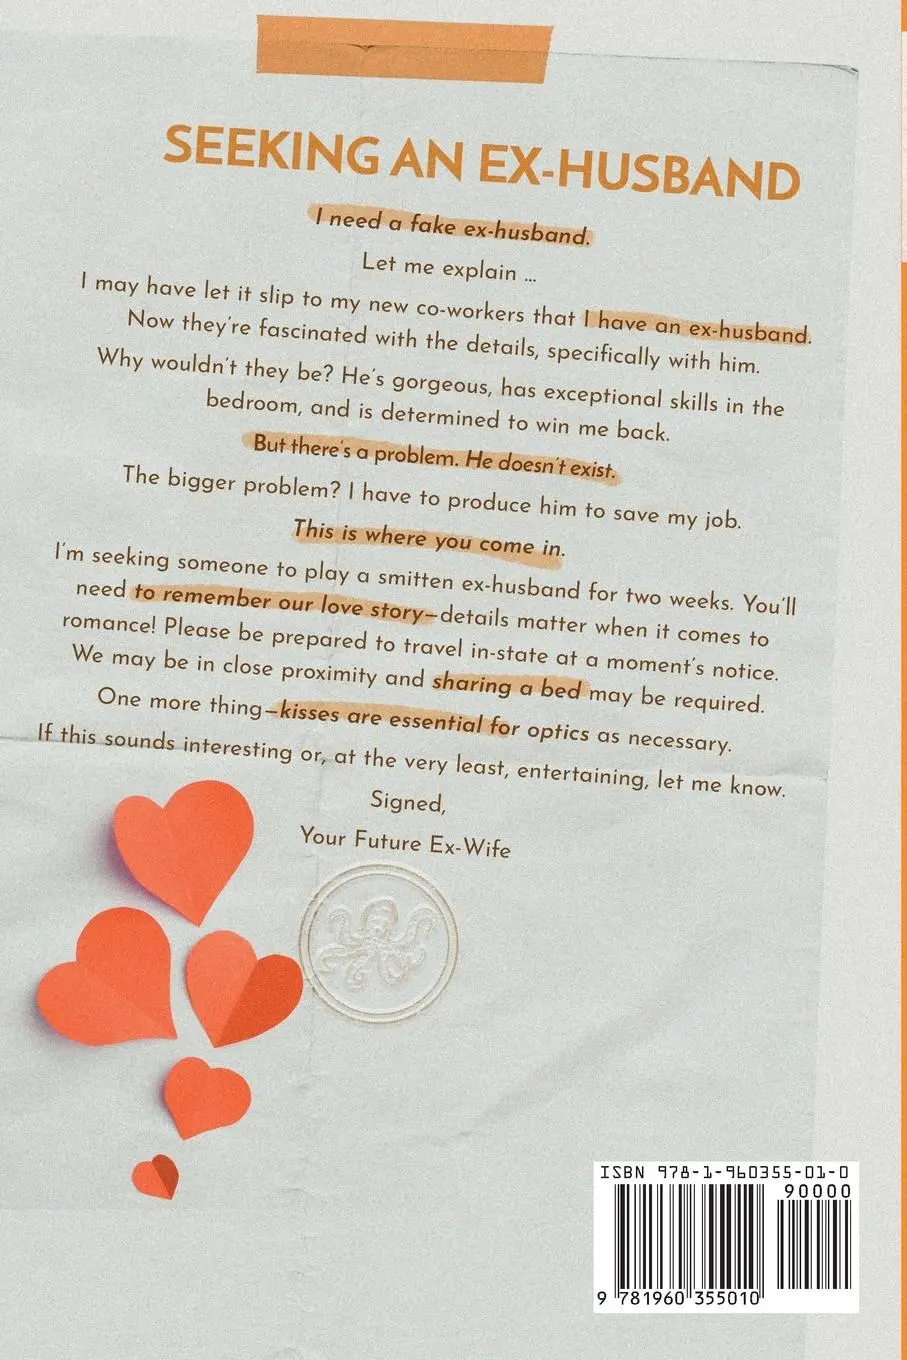 SEEKING AN EX-HUSBAND
I need a fake ex-husband.
Let me explain ...
I may have let it slip to my new co-workers that I have an ex-husband.
Now they're fascinated with the details, specifically with him.
Why wouldn't they be? He's gorgeous, has exceptional skills in the
bedroom, and is determined to win me back.
But there's a problem. He doesn't exist.
The bigger problem? I have to produce him to save my job.
This is where you come in.
I'm seeking someone to play a smitten ex-husband for two weeks. You'll
need to remember our love story—details matter when it comes to
romance! Please be prepared to travel in-state at a moment's notice.
We may be in close proximity and sharing a bed may be required.
One more thing—kisses are essential for optics as necessary.
If this sounds interesting or, at the very least, entertaining, let me know.
Signed,
Your Future Ex-Wife
ISBN 978-1-960355-01-0
90000
9 781960 355010